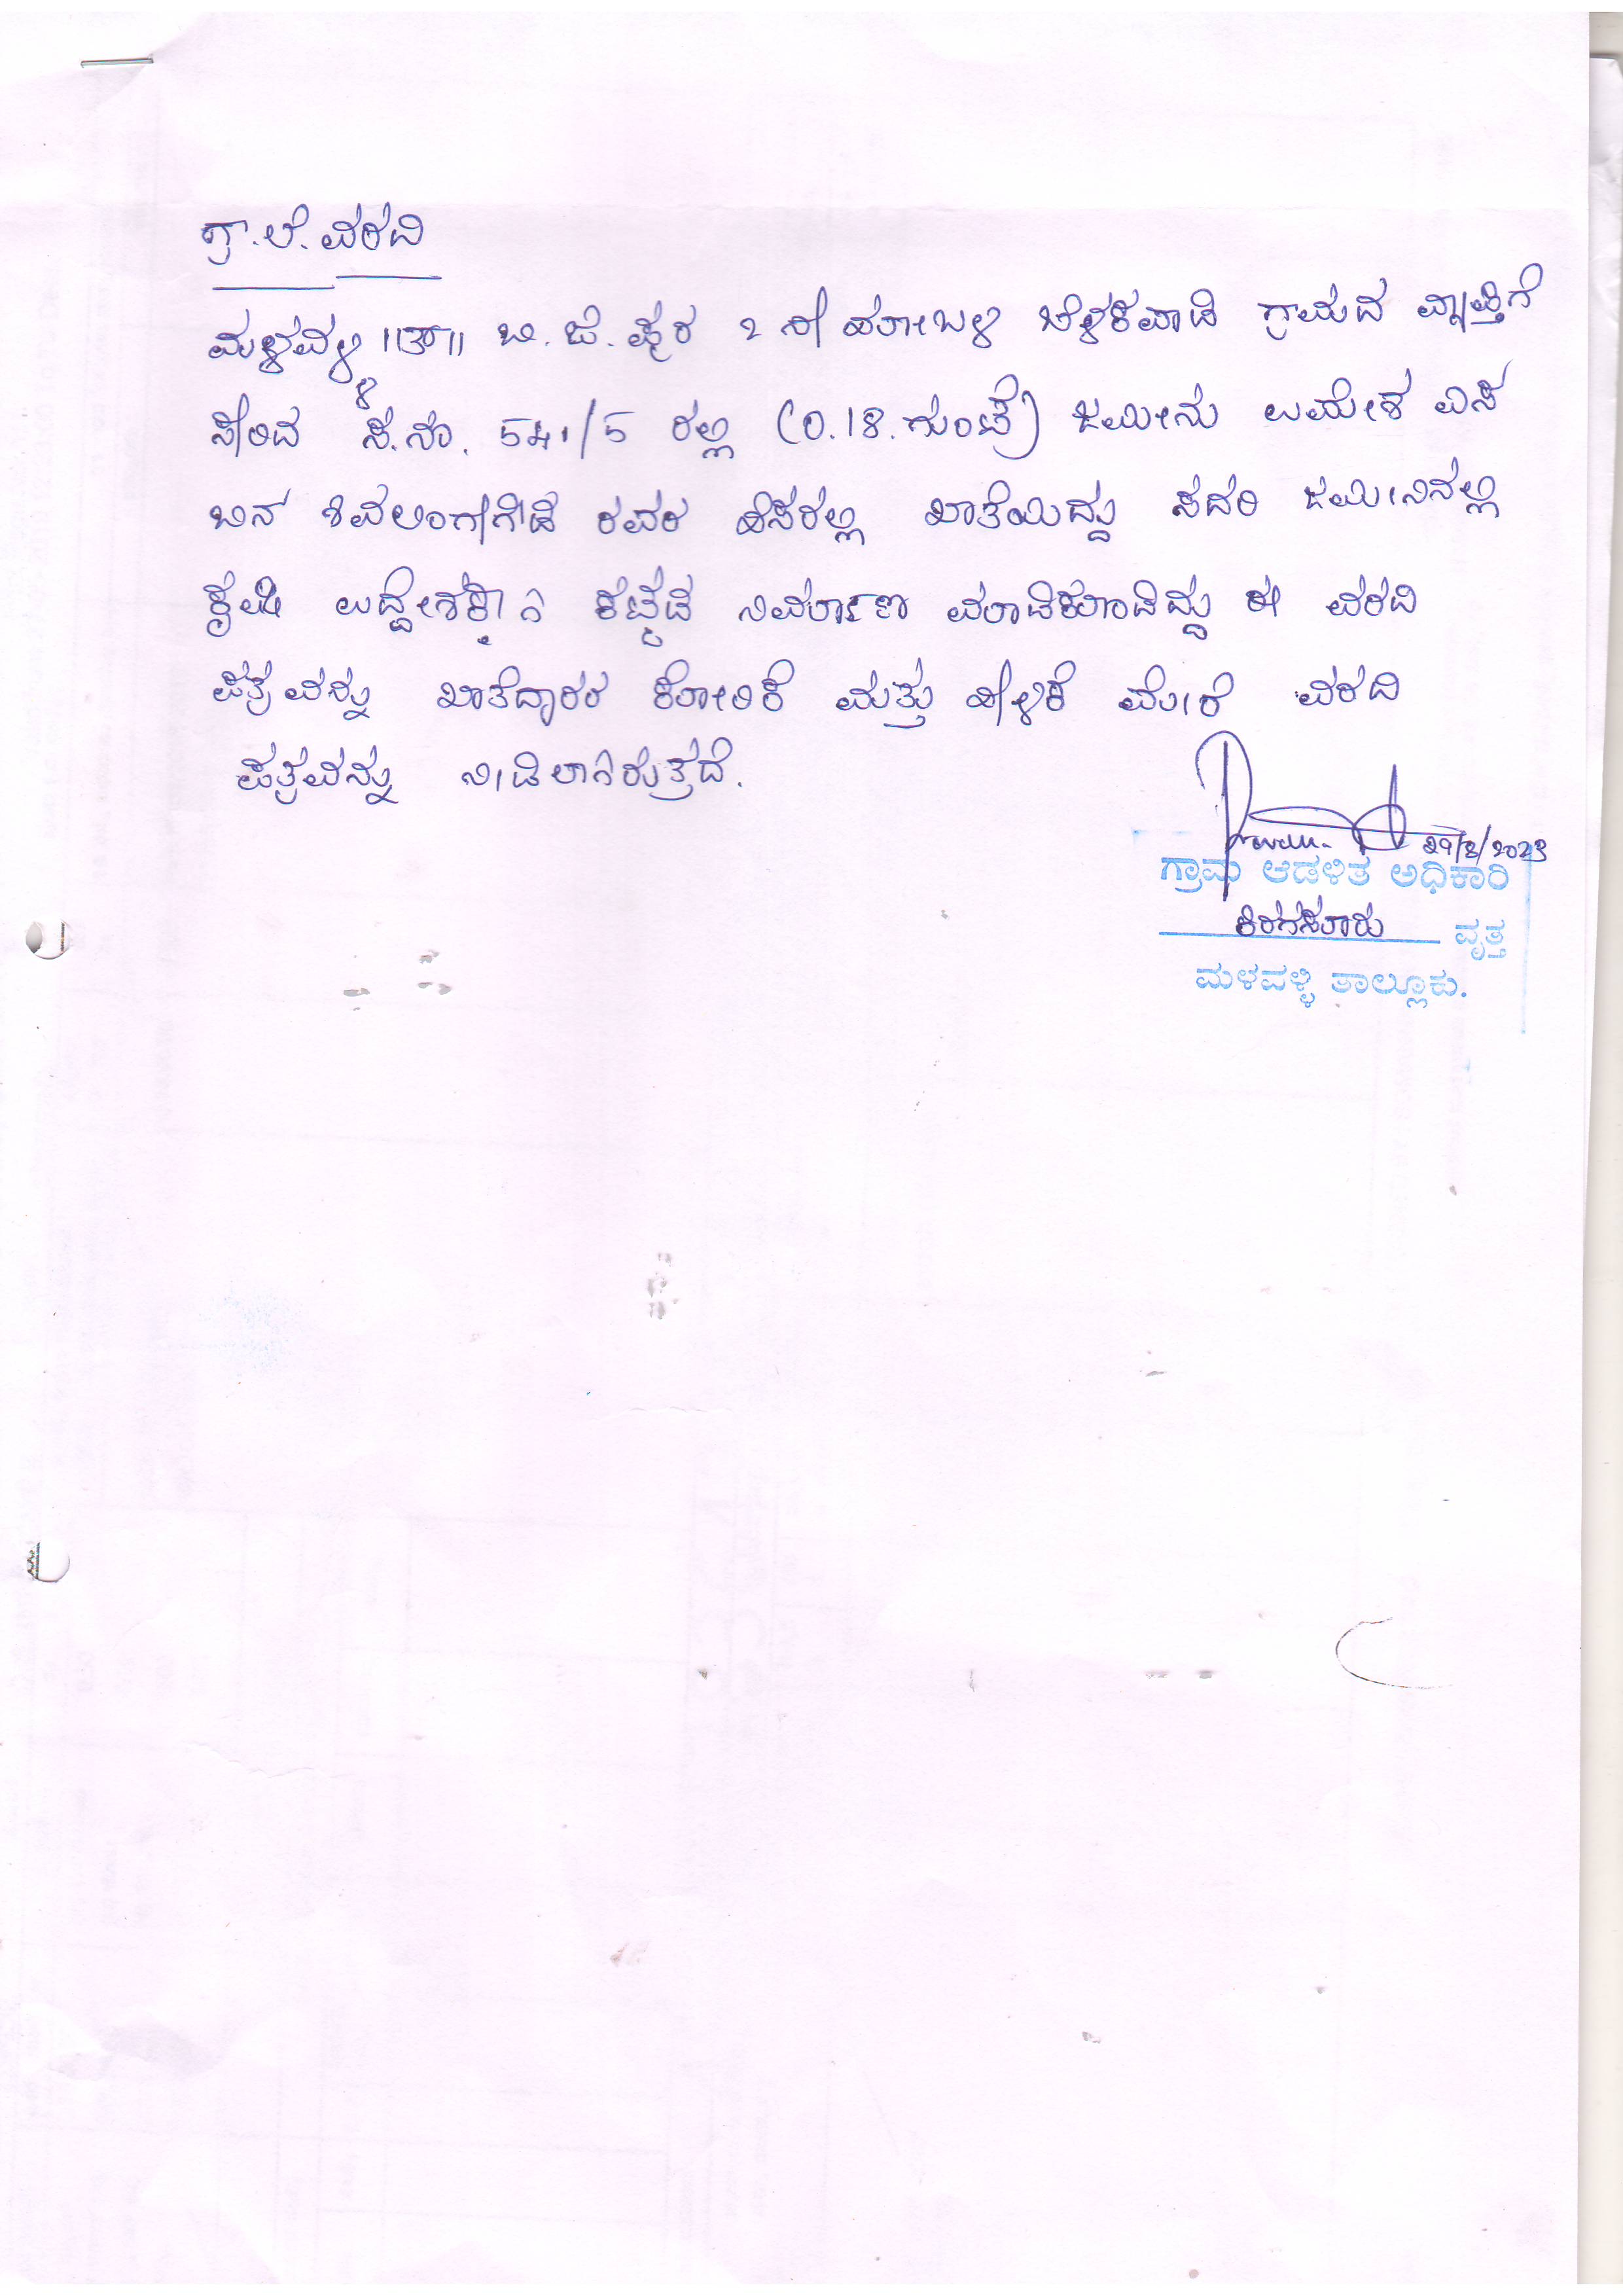 ಗ್ರಾ.ಲೆ. ವರದಿ
ಮಳವಳ್ಳಿ ||ತಾ|| ಬಿ.ಜಿ.ಪುರ 2ನೇ ಹೋಬಳಿ ಬೆಳಕವಾಡಿ ಗ್ರಾಮದ ವ್ಯಾಪ್ತಿಗೆ
ಸೇರಿದ ಸ.ನಂ. 541/5 ರಲ್ಲಿ (0.18.ಗುಂಟೆ) ಜಮೀನು ಉಮೇಶ ಎಸ್
ಬಿನ್ ಶಿವಲಿಂಗೇಗೌಡ ರವರ ಹೆಸರಲ್ಲಿ ಖಾತೆಯಿದ್ದು ಸದರಿ ಜಮೀನಿನಲ್ಲಿ
ಕೃಷಿ ಉದ್ದೇಶಕ್ಕಾಗಿ ಕಟ್ಟಡ ನಿರ್ಮಾಣ ಮಾಡಿಕೊಂಡಿದ್ದು ಈ ವರದಿ
ಪತ್ರವನ್ನು ಖಾತೆದ್ಯಾರರ ಕೋರಿಕೆ ಮತ್ತು ಹೇಳಿಕೆ ಮೇರೆ ವರದಿ
ಪತ್ರವನ್ನು ನೀಡಿಲಾಗಿರುತ್ತದೆ.
29/8/2023
ಗ್ರಾಮ ಆಡಳಿತ ಅಧಿಕಾರಿ
ಕಿರಗಸೂರು ವೃತ್ತ
ಮಳವಳ್ಳಿ ತಾಲ್ಲೂಕು.